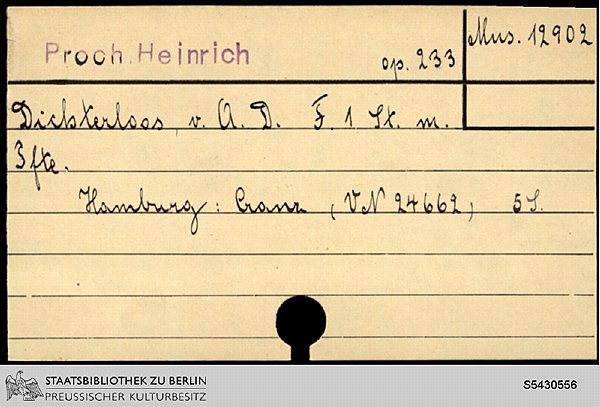 Proch, Heinrich
op. 233
Mus. 12902
Dichterloos v. A. D. F. 1 St. m.
Pfte.
Hamburg: Cranz (VN 24662) 5 S.
STAATSBIBLIOTHEK ZU BERLIN
PREUSSISCHER KULTURBESITZ
S5430556